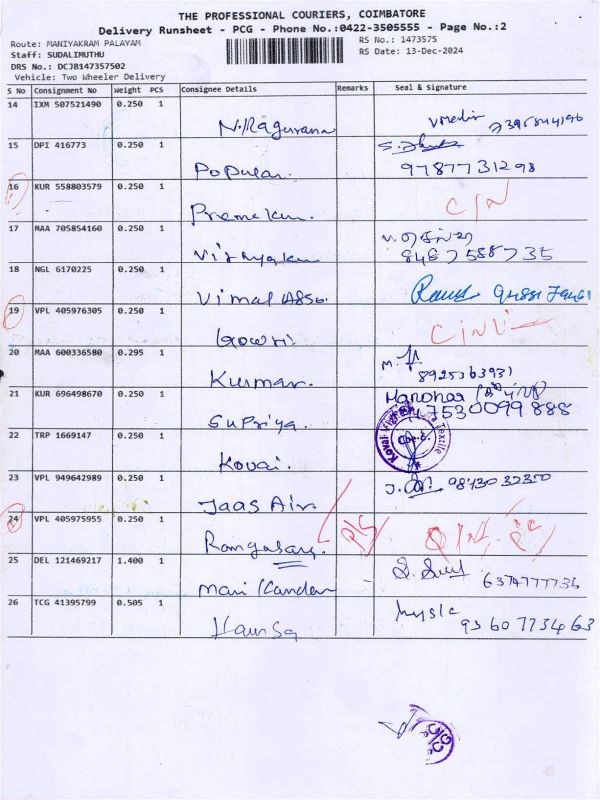 THE PROFESSIONAL COURIERS, COIMBATORE
Delivery Runsheet - PCG - Phone No.:0422-3505555 - Page No.:2
Route: MANIYAKRAM PALAYAM
RS No.: 1473575
Staff: SUDALIMUTHU
RS Date: 13-Dec-2024
DRS No.: DCJB147357502
Vehicle: Two Wheeler Delivery
S No Consignment No Weight PCS Consignee Details Remarks Seal & Signature
14 IXM 507521490 0.250 1
N.Raguvana
15 DPI 416773 0.250 1
Popular. 9787731298
16 KUR 558803579 0.250 1
Premekur. C/N
17 MAA 705854160 0.250 1
8467588735
18 NGL 6170225 0.250 1
Vimal Asso.
19 VPL 405976305 0.250 1
Gowri.
20 MAA 600336580 0.295 1
Kurmar. 8925363931
21 KUR 696498670 0.250 1
Manohar
SuPriya. 7530099888
22 TRP 1669147 0.250 1
Kovai. Textile
23 VPL 949642989 0.250 1
Jaas Air. 9873032350
24 VPL 405975955 0.250 1
Rangasamy.
25 DEL 121469217 1.400 1
Mani Kandan 6374777736
26 TCG 41395799 0.505 1
Hamsa 9360773463